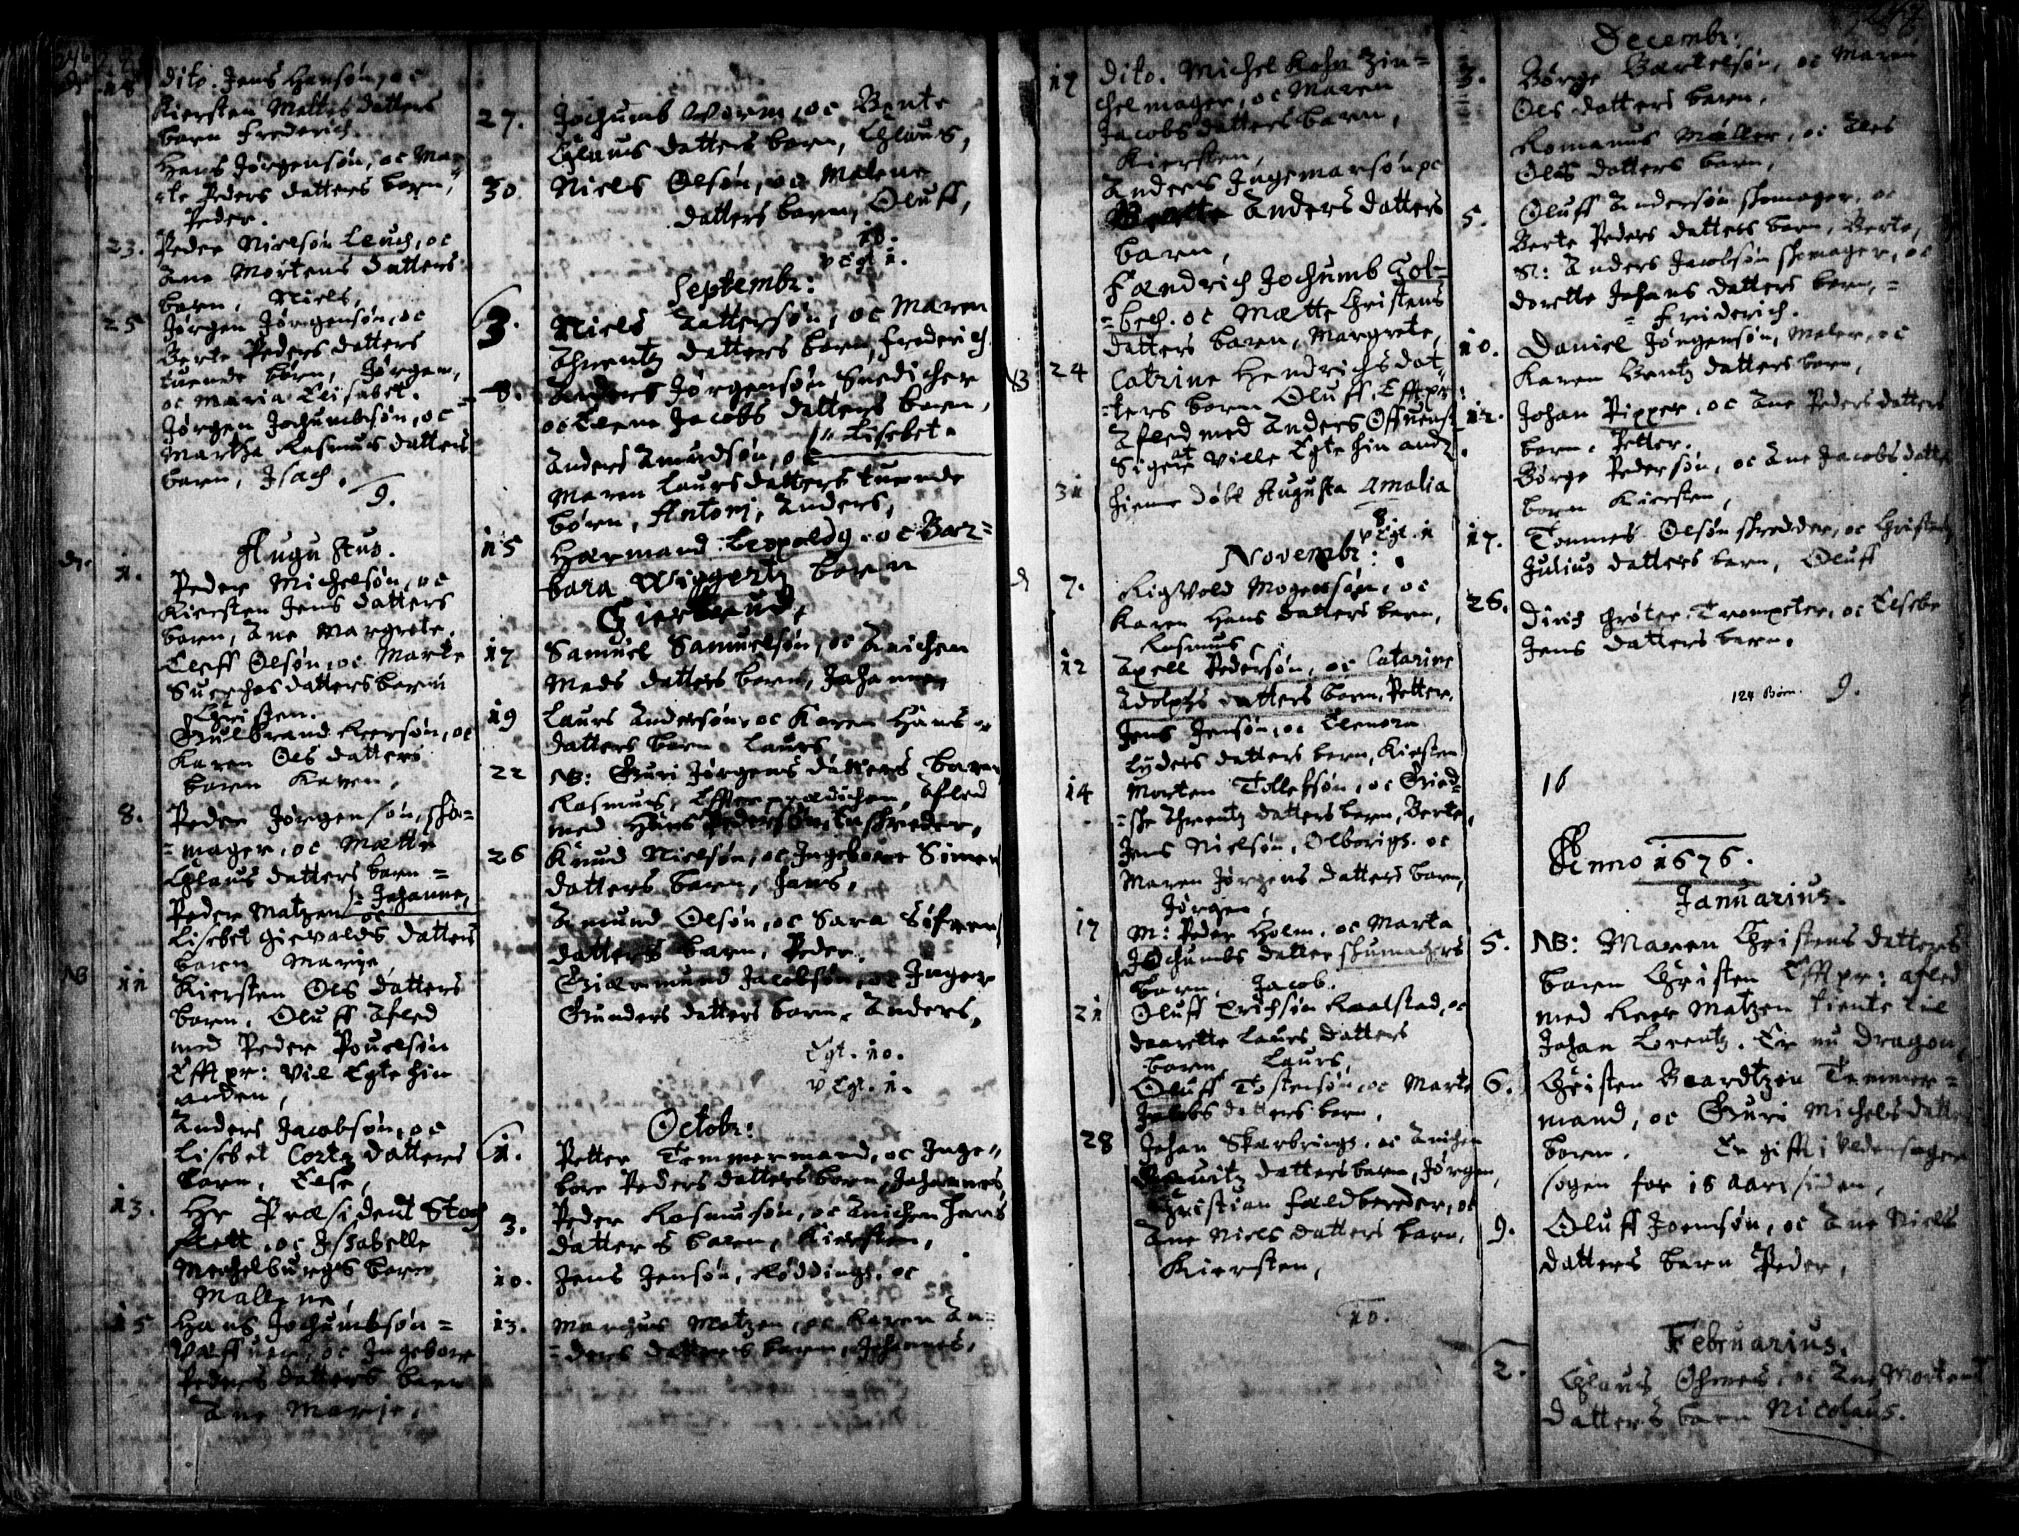 246
18 dito. Jens Hansøn, oc
Kiersten Mattis datters
barn Frederich.
Hans Jørgensøn, oc Mar
rte Peders datters barn,
Peder.
23. Peder Nielsøn Leuch, oc
Ane Mortens datters
barn, Niels,
25 Jørgen Jørgensøn, oc
Berte Peders datters
tuende børn, Jørgen,
oc Maria Elisabet.
Jørgen Jochumbsøn, oc
Martha Rasmus datters
barn, Isach.
9.
Augustus.
1. Peder Michelsøn, oc
Kiersten Jens datters
barn, Ane Margrete.
Eleff Olsøn, oc Marte
datters barn
Christen.
Gulbrand Iversøn, oc
Karen Ols datters
barn Karen,
8. Peder Jørgensøn, sko=
=mager, oc Mætte
Claus datters barn =
= Johanne,
Peder Matzen oc
Lisebet datters
barn Marie
NB 11 Kiersten Ols datters
barn, Oluff Afled
med Peder Pouelsøn
Efft pr: vil Egte hin
anden,
Anders Jacobsøn, oc
Lisebet Cortz datters
barn, Else,
13. Hr Præsident Stoch
flett, oc Isabelle
Mechelburgs barn
Mallene,
15 Hans Jochumbsøn =
oc Ingebore
Peders datters barn
Ane Marie,
27. Jochumb Worm, oc Bente
Claus datters barn, Claus,
30. Niels Olsøn, oc Malene
datters barn, Oluff,
10.
v Egt. 1.
Septembr:
3. Niels Zattersøn, oc Maren
datters barn, Frederich
8. Anders Jørgensøn Snedicher
oc Elene Jacobs datters barn,
Lisebet.
Anders Amundsøn, oc
Maren Laursdatters tuende
børn, Antoni, Anders,
15 Harmand Leopoldg. oc Bar=
bara Wiggertz barn
Giertrud,
17 Samuel Samuelsøn, oc Anichen
Mads datters barn, Johanne,
19 Laurs Andersøn, oc Karen Hans
datters barn Laurs
22 NB: Guri Jørgens datters barn
Rasmus, Effter Afled
med Hans Pedersøn
26 Knud Nielsøn, oc Ingeborre Simen
datters barn, Hans,
Amund Olsøn, oc Sara Søfren
datters barn, Peder.
Giermund Jacobsøn, oc Inger
Gunders datters barn, Anders,
Egt. 10.
v Egt. 1.
Octobr:
1. Petter Temmermand, oc Inge
bore Peders datters barn, Johannes,
3. Peder Rasmusøn, oc Anichen Hans
datters barn, Kiersten,
10. Jens Jensøn, Røddings, oc
13. Marchus Matzen, oc Karen An=
=ders datters barn, Johannes,
19 dito. Michel Kohn Zin=
chelmager, oc Maren
Jacobsdatters barn,
Kiersten,
Anders Ingemarsøn oc
Berette Anders datters
barn,
Fændrich Jochumb Gol=
=bech. oc Mætte Christens
datters barn, Margrete,
24 Catrine Hendrichsdat
=ters barn Oluff, Efft pr:
Afled med Anders
Sigeis at ville Egte hin andr.
31 hieme døbt Augusta Amalia
8
v Egt. 1
Novembr:
7. Rigvold Mogensøn, oc
Karen Hans datters barn,
Rasmus,
12 Axell Pedersøn, oc Catarine
Adolphs datters barn, Petter,
Jens Jensøn, oc Elenora
Lyders datters barn, Kiersten
14 Morten Tollefsøn, oc
datters barn, Berte,
Jens Nielsøn, Olborigs. oc
Maren Jørgens datters barn,
Jørgen,
17 M: Peder Holm, oc Marta
Jochumbs datter skumagers
barn, Jacob.
21 Oluff Erichsøn Kaalstad, oc
daarette Laurs datters
barn, Laurs,
Oluff Tostensøn, oc Marte
Jacobs datters barn,
28 Johan Skarbrings, oc Anichen
datters barn, Jørgen,
Christian Faldbereder, oc
Ane Niels datters barn,
Kiersten,
10.
247
Decembr:
3. Børge Bartelsøn, oc Maren
Ols datters barn,
Romanus Møller, oc Eles
Olus datters barn,
5. Oluff Andersøn skomager, oc
Berte Peders datters barn, Berte,
N: Anders Jacobsøn skomager, oc
dorette Johans datters barn, =
= Friderich.
10. Daniel Jørgensøn, Maler, oc
Karen Bentz datters barn,
12. Johan Pipper, oc Ane Peders datters
barn, Petter.
Børge Pedersøn, oc Ane Jacobs datte
barn Kiersten,
17. Tommes Olsøn skredder, oc Christens
Julius datters barn, Oluff
26. Dirich Grøter Trompeter, oc Elsebe
Jens datters barn,
124 Børn. 9.
16
Anno 1676.
Januarius.
5. NB: Maren Christens datters
barn Christen Efft pr: afled
med Iver Matzen tiente til
Johan Lorentz. Er nu dragon,
6. Christen Baardtzen Temmer=
mand, oc Guri Michels datte
barn. Er gifft i
sogen for 18 aars siden,
9. Oluff Joensøn, oc Ane Niels
datters barn Peder,
Februarius.
2. Claus Ohmes, oc Ane Mortens
datters barn Nicolaus.